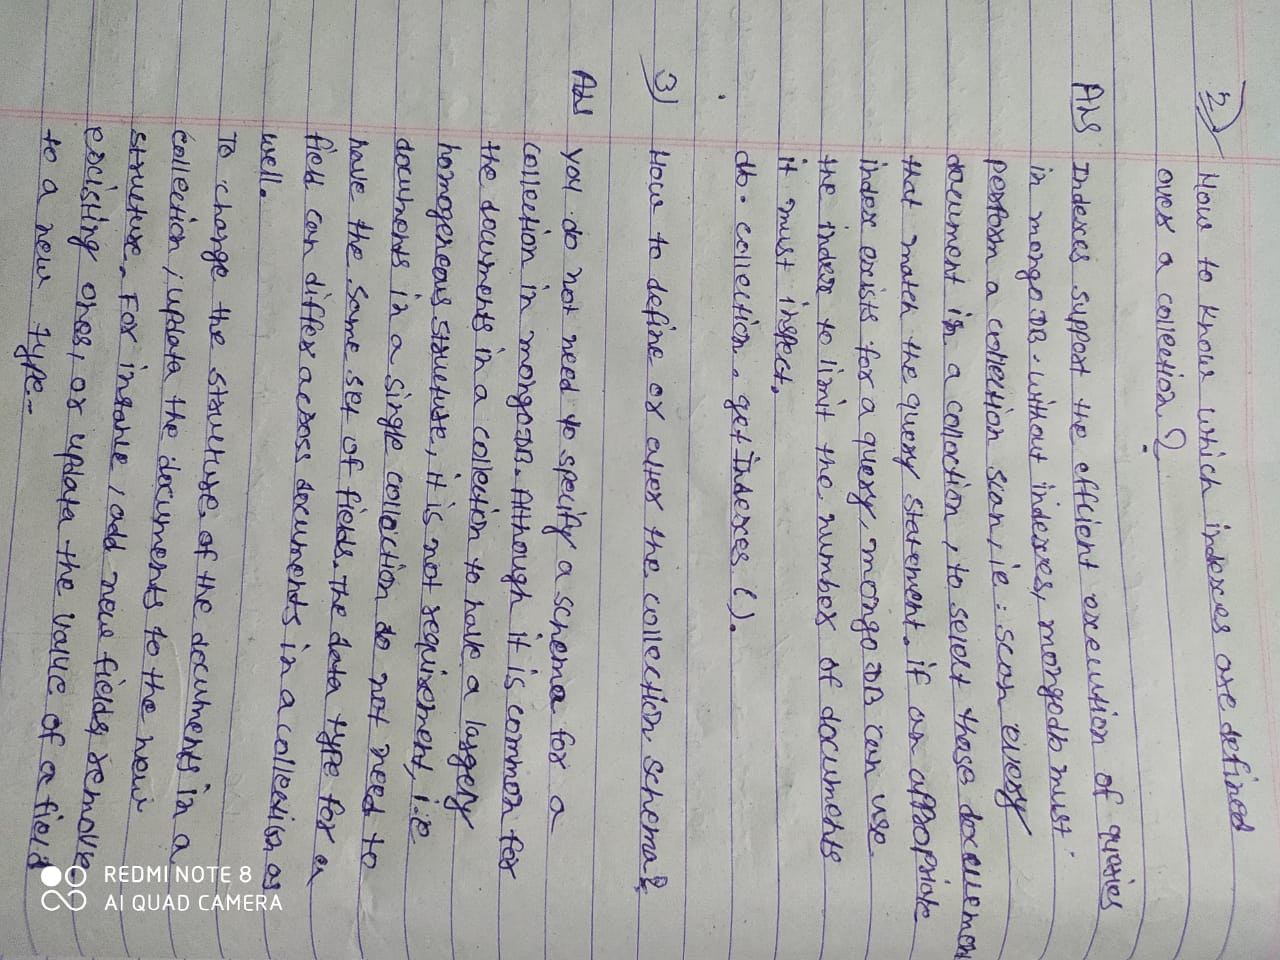 2) How to know which indexes are defined
over a collection ?
Ans Indexes support the effcient execution of queries
in mongoDB. without indexes, mongodb must
perform a collection scan, ie : scan every
document in a colloction, to select those docuement
that match the query statement. if an appropriate
index exists for a query, mongoDB can use
the index to limit the number of documents
it must inspect.
db. collection. getIndexes ().
3) How to define or alter the collection schema?
Ans you do not need to specify a schema for a
collection in mongoDB. Although it is common for
the documents in a collection to have a largery
homogeneous structure, it is not requirement, i.e
documents in a single collection do not need to
have the same set of fields. The data type for a
field can differ across documents in a collection as
well.
To change the structure of the documents in a
collection, updata the documents to the new
structure. For instance, add new fields, remove
existing ones, or updata the value of a field
to a new type-
REDMI NOTE 8
AI QUAD CAMERA